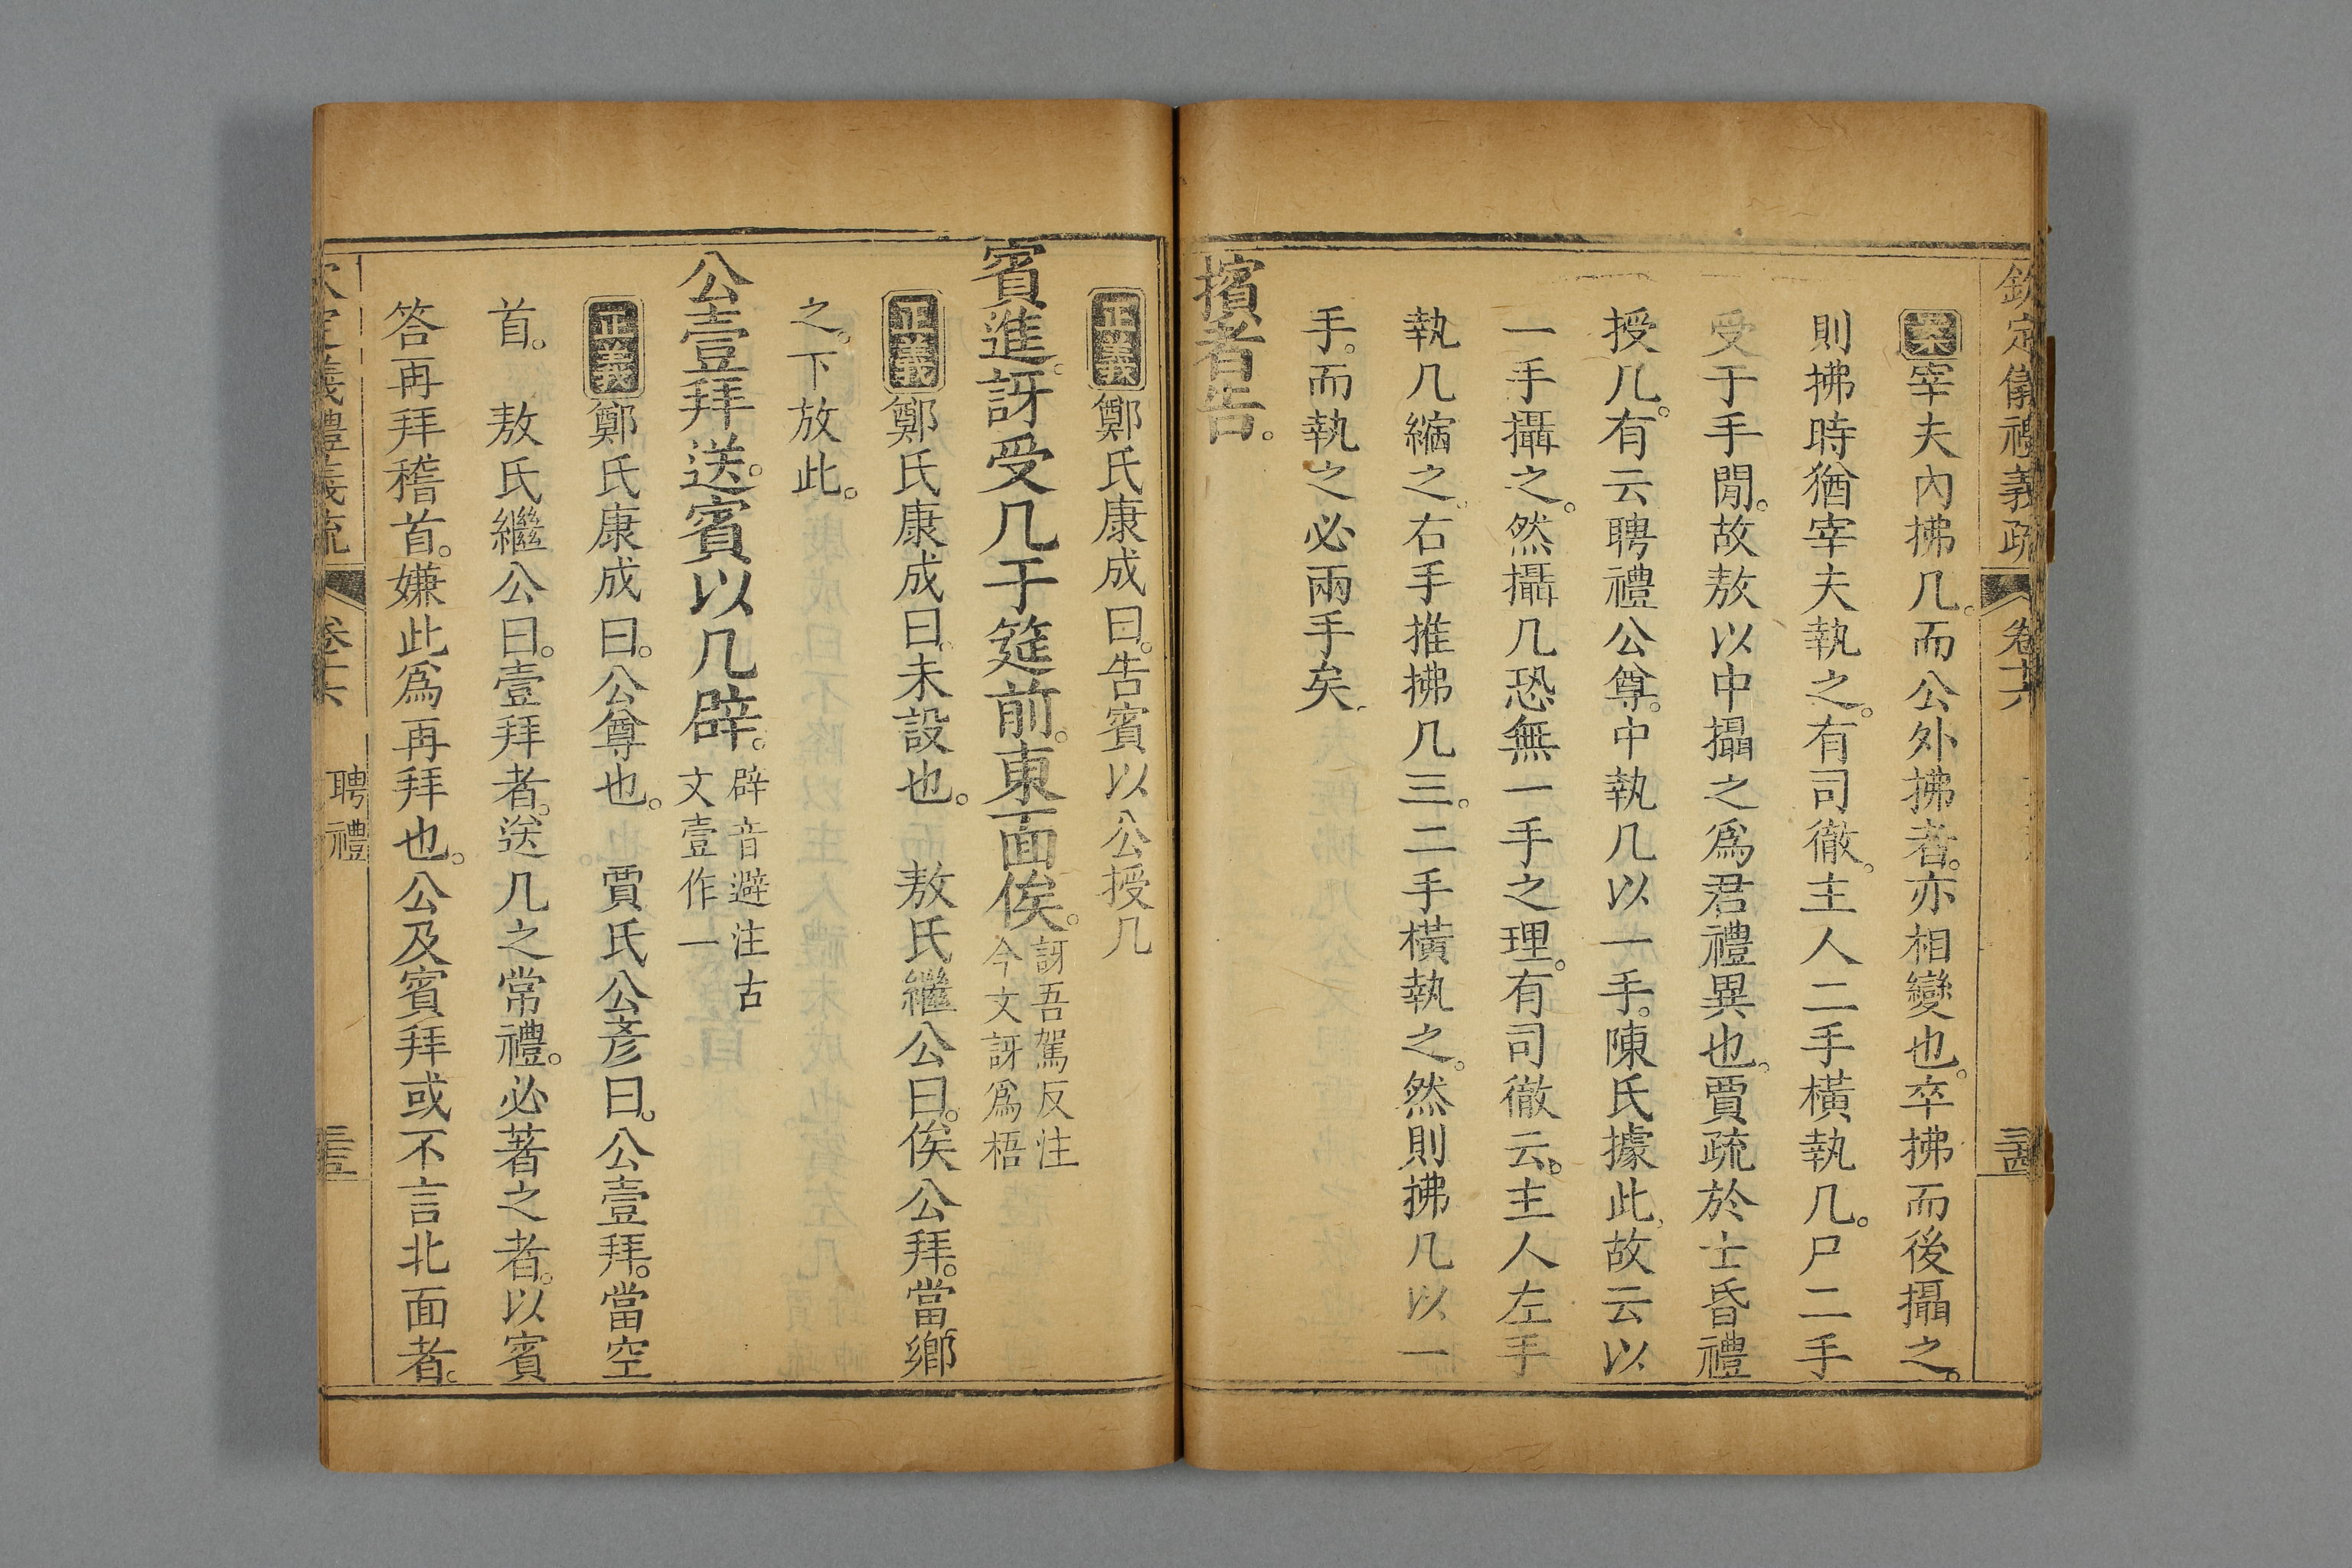 欽定儀禮義疏 卷十六 三十四
案宰夫內拂几。而公外拂者。亦相變也。卒拂而後攝之。
則拂時猶宰夫執之。有司徹。主人二手橫執几。尸二手
受于手閒。故敖以中攝之為君禮異也。賈疏於士昏禮
授几。有云聘禮公尊。中執几以一手。陳氏據此、故云以
一手攝之。然攝几恐無一手之理。有司徹云。主人左手
執几縮之、右手推拂几三。二手橫執之。然則拂几以一
手。而執之必兩手矣。
擯者告。
正義鄭氏康成曰。告賓以公授几
賓進。訝受几于筵前。東面俟。訝吾駕反注
今文訝為梧
正義鄭氏康成曰。未設也。 敖氏繼公曰。俟公拜。當鄉
之。下放此。
公壹拜送。賓以几辟。辟音避注古
文壹作一
正義鄭氏康成曰。公尊也。 賈氏公彥曰。公壹拜。當空
首。 敖氏繼公曰。壹拜者。送几之常禮。必著之者。以賓
答再拜稽首。嫌此為再拜也。公及賓拜或不言北面者。
欽定儀禮義疏 卷十六 聘禮 三十五